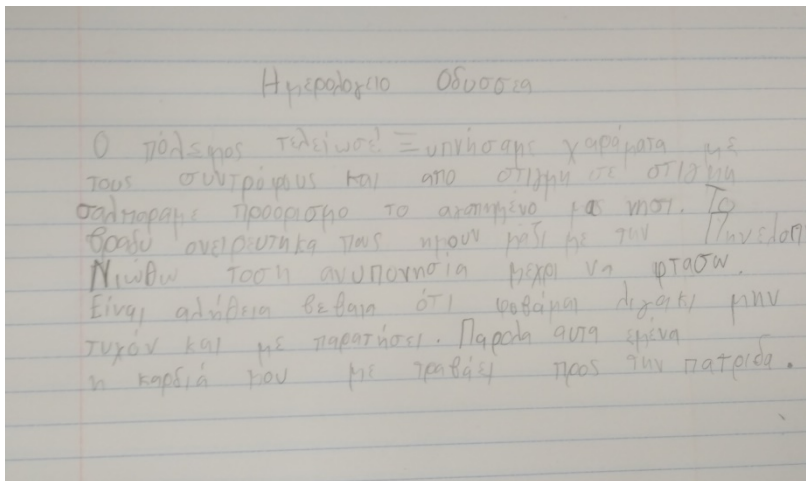 Ημερολογειο Οδυσσεα
Ο πόλεμος τελείωσε! Ξυπνήσαμε χαράματα με
τους συντρόφους και απο στιγμη σε στιγμη
σαλπαραμε προορισμο το αγαπημένο μας νησι. Το
βραδυ ονειρευτηκα πως ημουν μαζι με την Πηνελοπ
Νιωθω τοση ανυπονησία μεχρι να φτασω.
Είναι αλήθεια βεβαια ότι φοβάμαι λιγακι μην
τυχόν και με παρατήσει. Παρολα αυτα εμένα
η καρδιά μου με τραβάει προς την πατριδα.